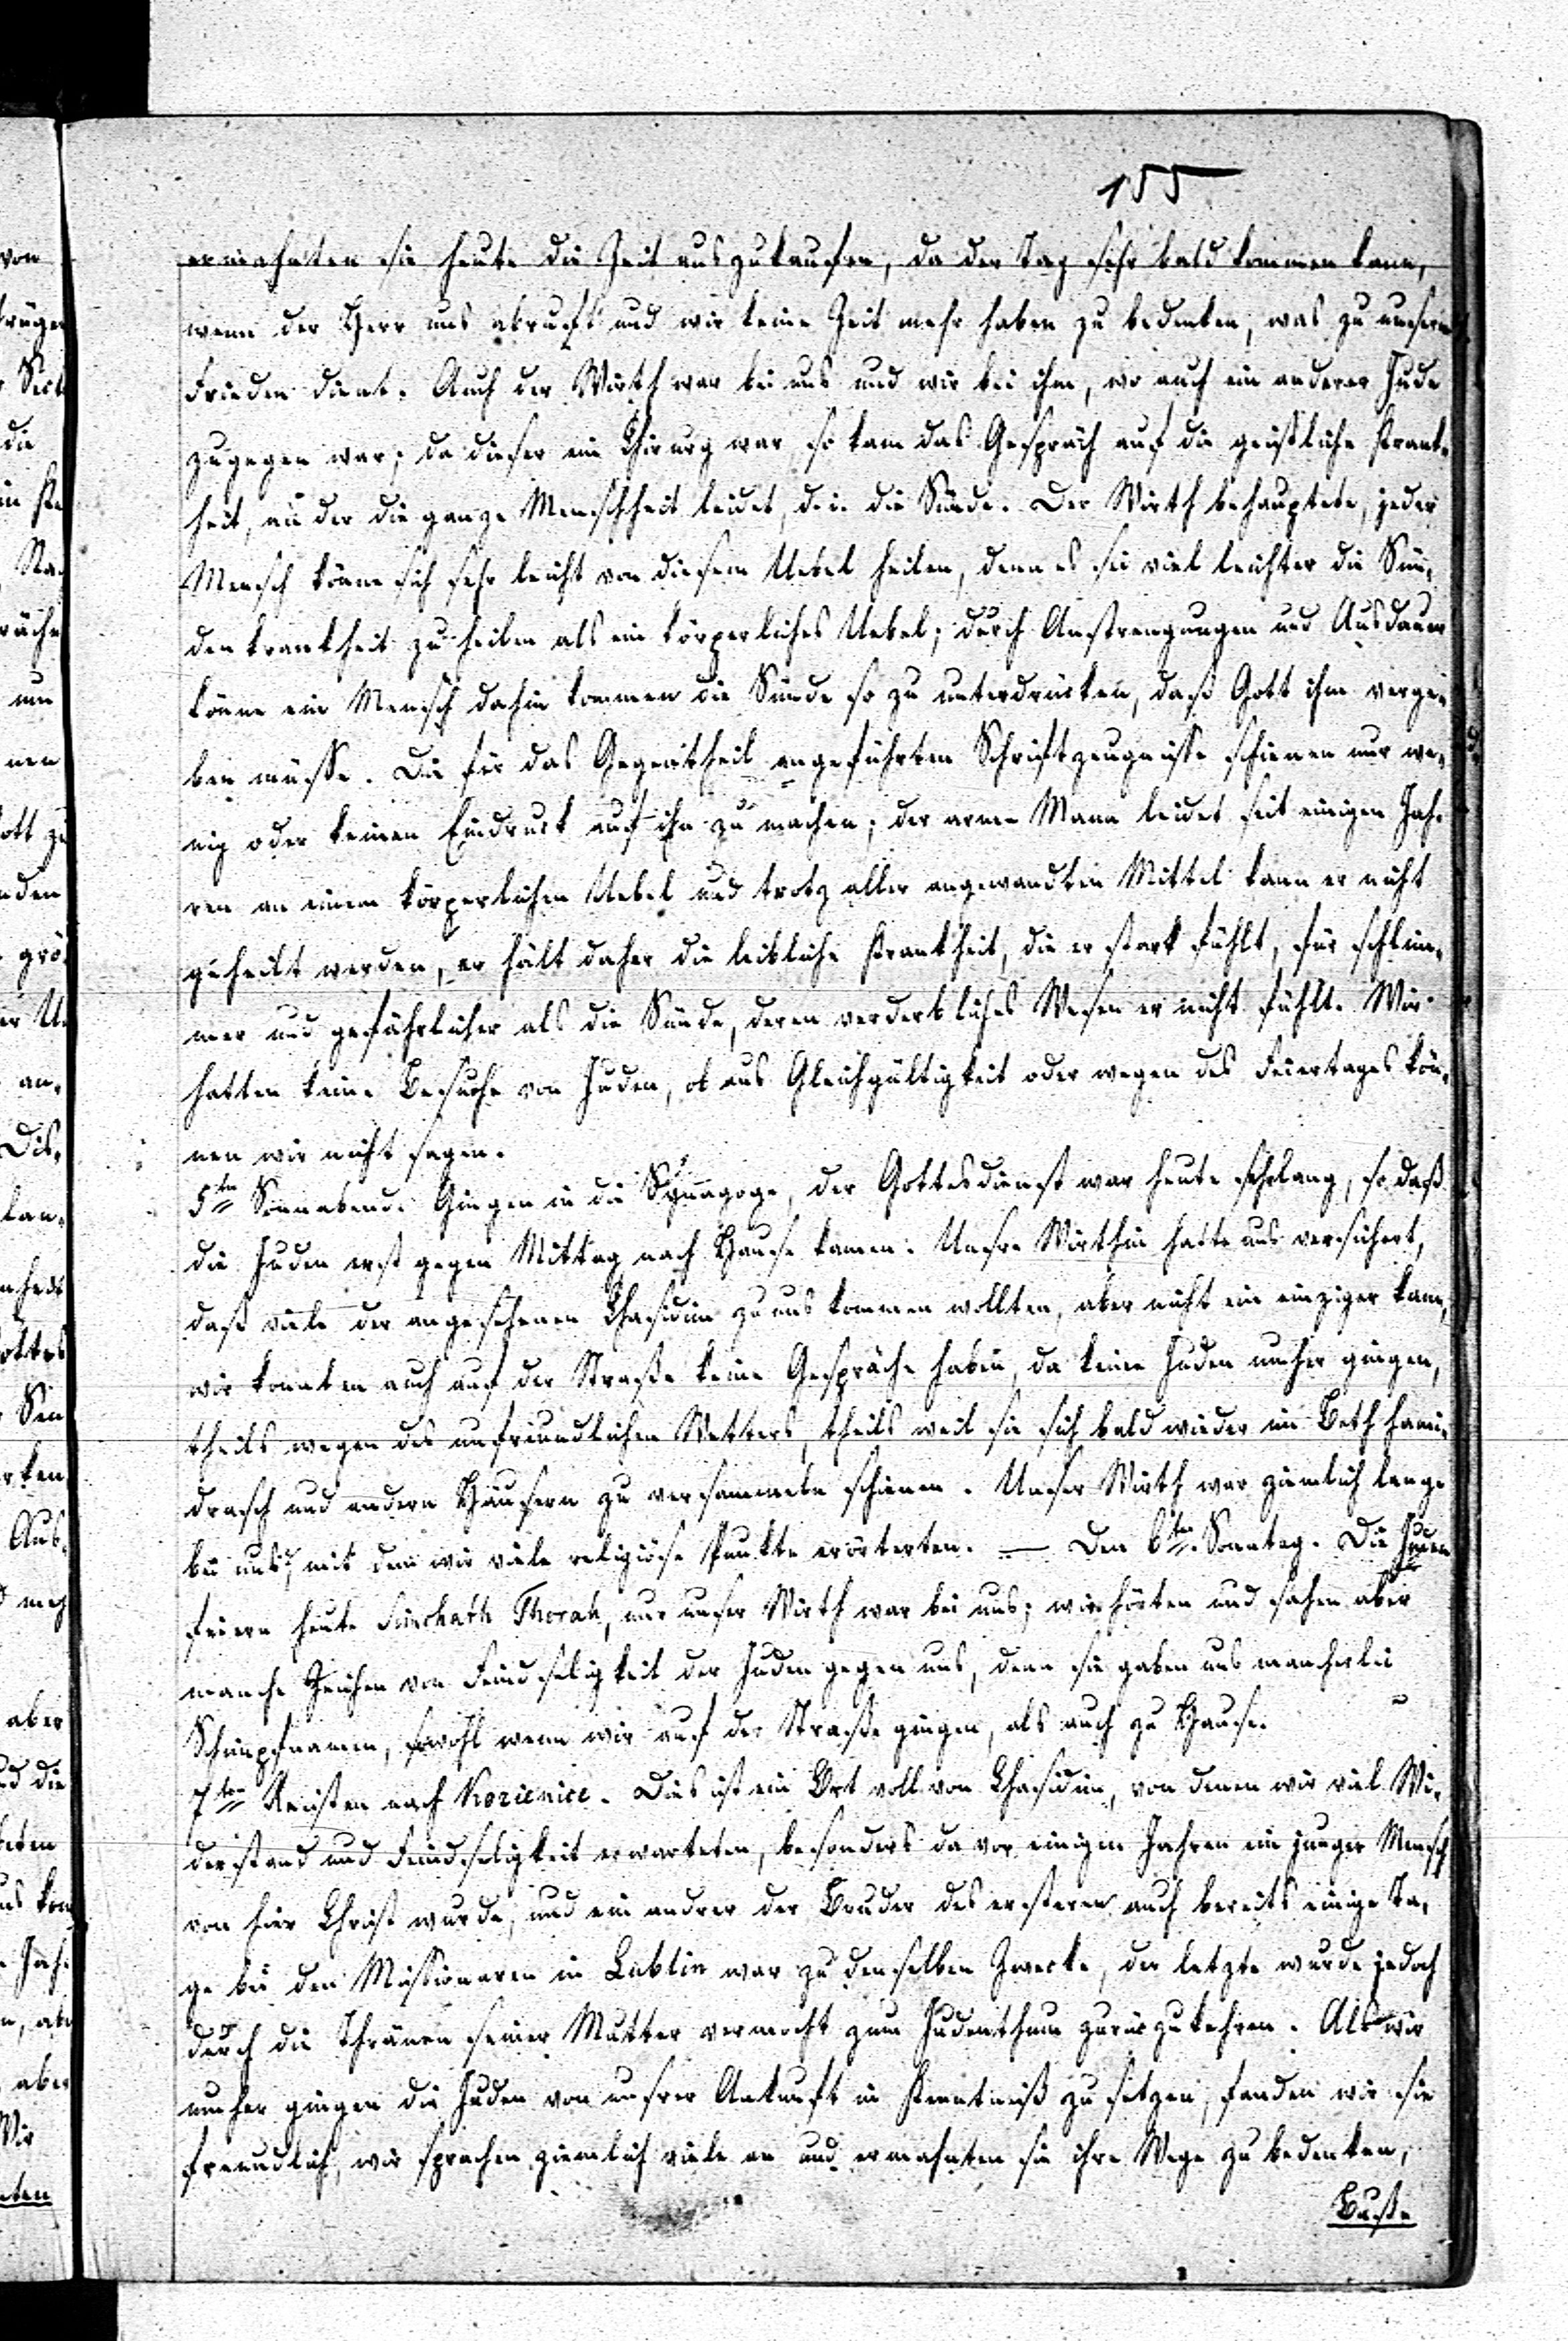 155
ermahnten sie heute die Zeit auszukaufen, da der Tag sehr bald kommen kann,
wenn der Herr uns abruft und wir keine Zeit mehr haben zu bedenken, was zu unserm
Frieden dient. Auch der Wirth war bei uns und wir bei ihm, wo auch ein anderer Jude
zugegen war; da dieser ein Chirurg war so kam das Gespräch auf die geistliche Krank-
heit, an der die ganze Menschheit leidet, d. i. die Sünde. Der Wirth behauptete, jeder
Mensch könne sich sehr leicht von diesem Uebel heilen, denn es sei viel leichter die Sün-
denkrankheit zu heilen als ein körperliches Uebel; durch Anstrengungen und Ausdauer
könne ein Mensch dahin kommen die Sünde so zu unterdrücken, daß Gott ihm verge-
ben müsse. Die für das Gegentheil angeführten Schriftzeugnisse schienen nur we-
nig oder keinen Eindruck auf ihn zu machen; der arme Mann leidet seit einigen Jah-
ren an einem körperlichen Uebel und trotz aller angewandten Mittel kann er nicht
geheilt werden, er hält daher die leibliche Krankheit, die er stark fühlt, für schlim-
mer und gefährlicher als die Sünde, deren verderbliches Wesen er nicht fühlt. Wir
hatten keine Besuche von Juden, ob aus Gleichgültigkeit oder wegen des Feiertages kön-
nen wir nicht sagen.
5ten Sonnabend. Gingen in die Synagoge, der Gottesdienst war heute sehr lang, so daß
die Juden erst gegen Mittag nach Hause kamen. Unsre Wirthin hatte uns versichert,
daß viele der angesehenen Chasidim zu uns kommen wollten, aber nicht ein einziger kam,
wir konnten auch auf der Straße keine Gespräche haben, da keine Juden umher gingen,
theils wegen des unfreundlichen Wetters, theils weil sie sich bald wieder im Beth hami-
drasch und andern Häusern zu versammeln schienen. Unser Wirth war ziemlich lange
bei uns, mit dem wir viele religiöse Punkte erörterten. — Den 6ten Sonntag. Die Juden
feiern heute Simchath Thorah, nur unser Wirth war bei uns; wir hörten und sahen aber
manche Zeichen von Feindseligkeit der Juden gegen uns, denn sie gaben uns mancherlei
Schimpfnamen, sowohl wenn wir auf der Straße gingen, als auch zu Hause.
7ten Reisten nach Kozienice. Dies ist ein Ort voll von Chasidim, von denen wir viel Wi-
derstand und Feindseligkeit erwarteten, besonders da vor einigen Jahren ein junger Mensch
von hier Christ wurde, und ein andrer der Bruder des ersteren auch bereits einige Ta-
ge bei den Missionaren in Lublin war zu demselben Zwecke, der letzte wurde jedoch
durch die Thränen seiner Mutter vermocht zum Judenthum zurückzukehren. Als wir
umher gingen die Juden von unsrer Ankunft in Kenntniß zu setzen, fanden wir sie
freundlich, wir sprachen ziemlich viele an und ermahnten sie ihre Wege zu bedenken,
Buße